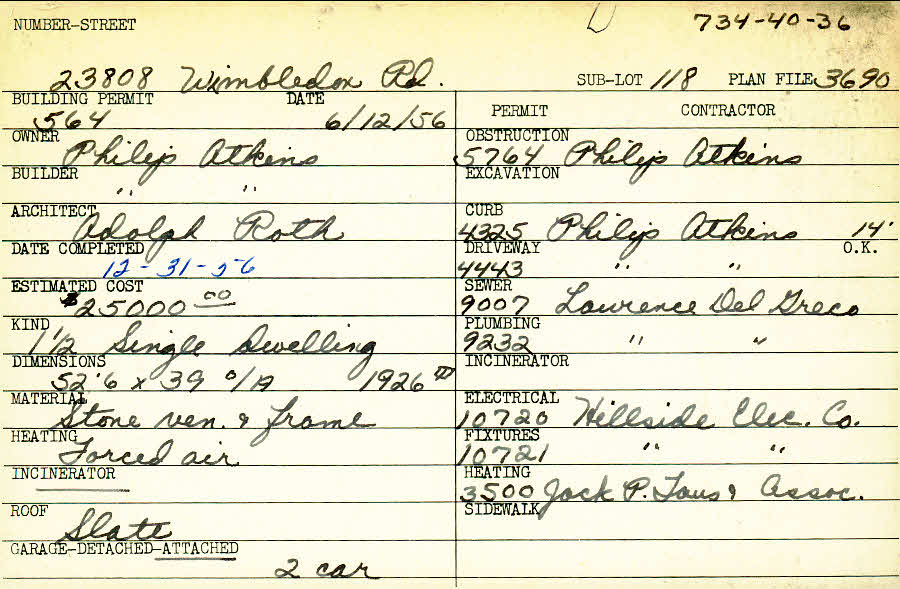 734-40-36
NUMBER-STREET
23808 Wimbledon Rd.
SUB-LOT 118 PLAN FILE 3690
BUILDING PERMIT DATE
564 6/12/56
OWNER
Philip Atkins
BUILDER
" "
ARCHITECT
Adolph Roth
DATE COMPLETED
12-31-56
ESTIMATED COST
$25000 00
KIND
1 1/2 Single Dwelling
DIMENSIONS
52'6 x 39 o/A 1926
MATERIAL
Stone ven. & frame
HEATING
Forced air
INCINERATOR
ROOF
Slate
GARAGE-DETACHED-ATTACHED
2 car
PERMIT CONTRACTOR
OBSTRUCTION
5764 Philip Atkins
EXCAVATION
CURB
4325 Philip Atkins 14'
DRIVEWAY O.K.
4443 " "
SEWER
9007 Lawrence Del Greco
PLUMBING
9232 " "
INCINERATOR
ELECTRICAL
10720 Hillside Elec. Co.
FIXTURES
10721 " "
HEATING
3500 Jack P. & Assoc.
SIDEWALK